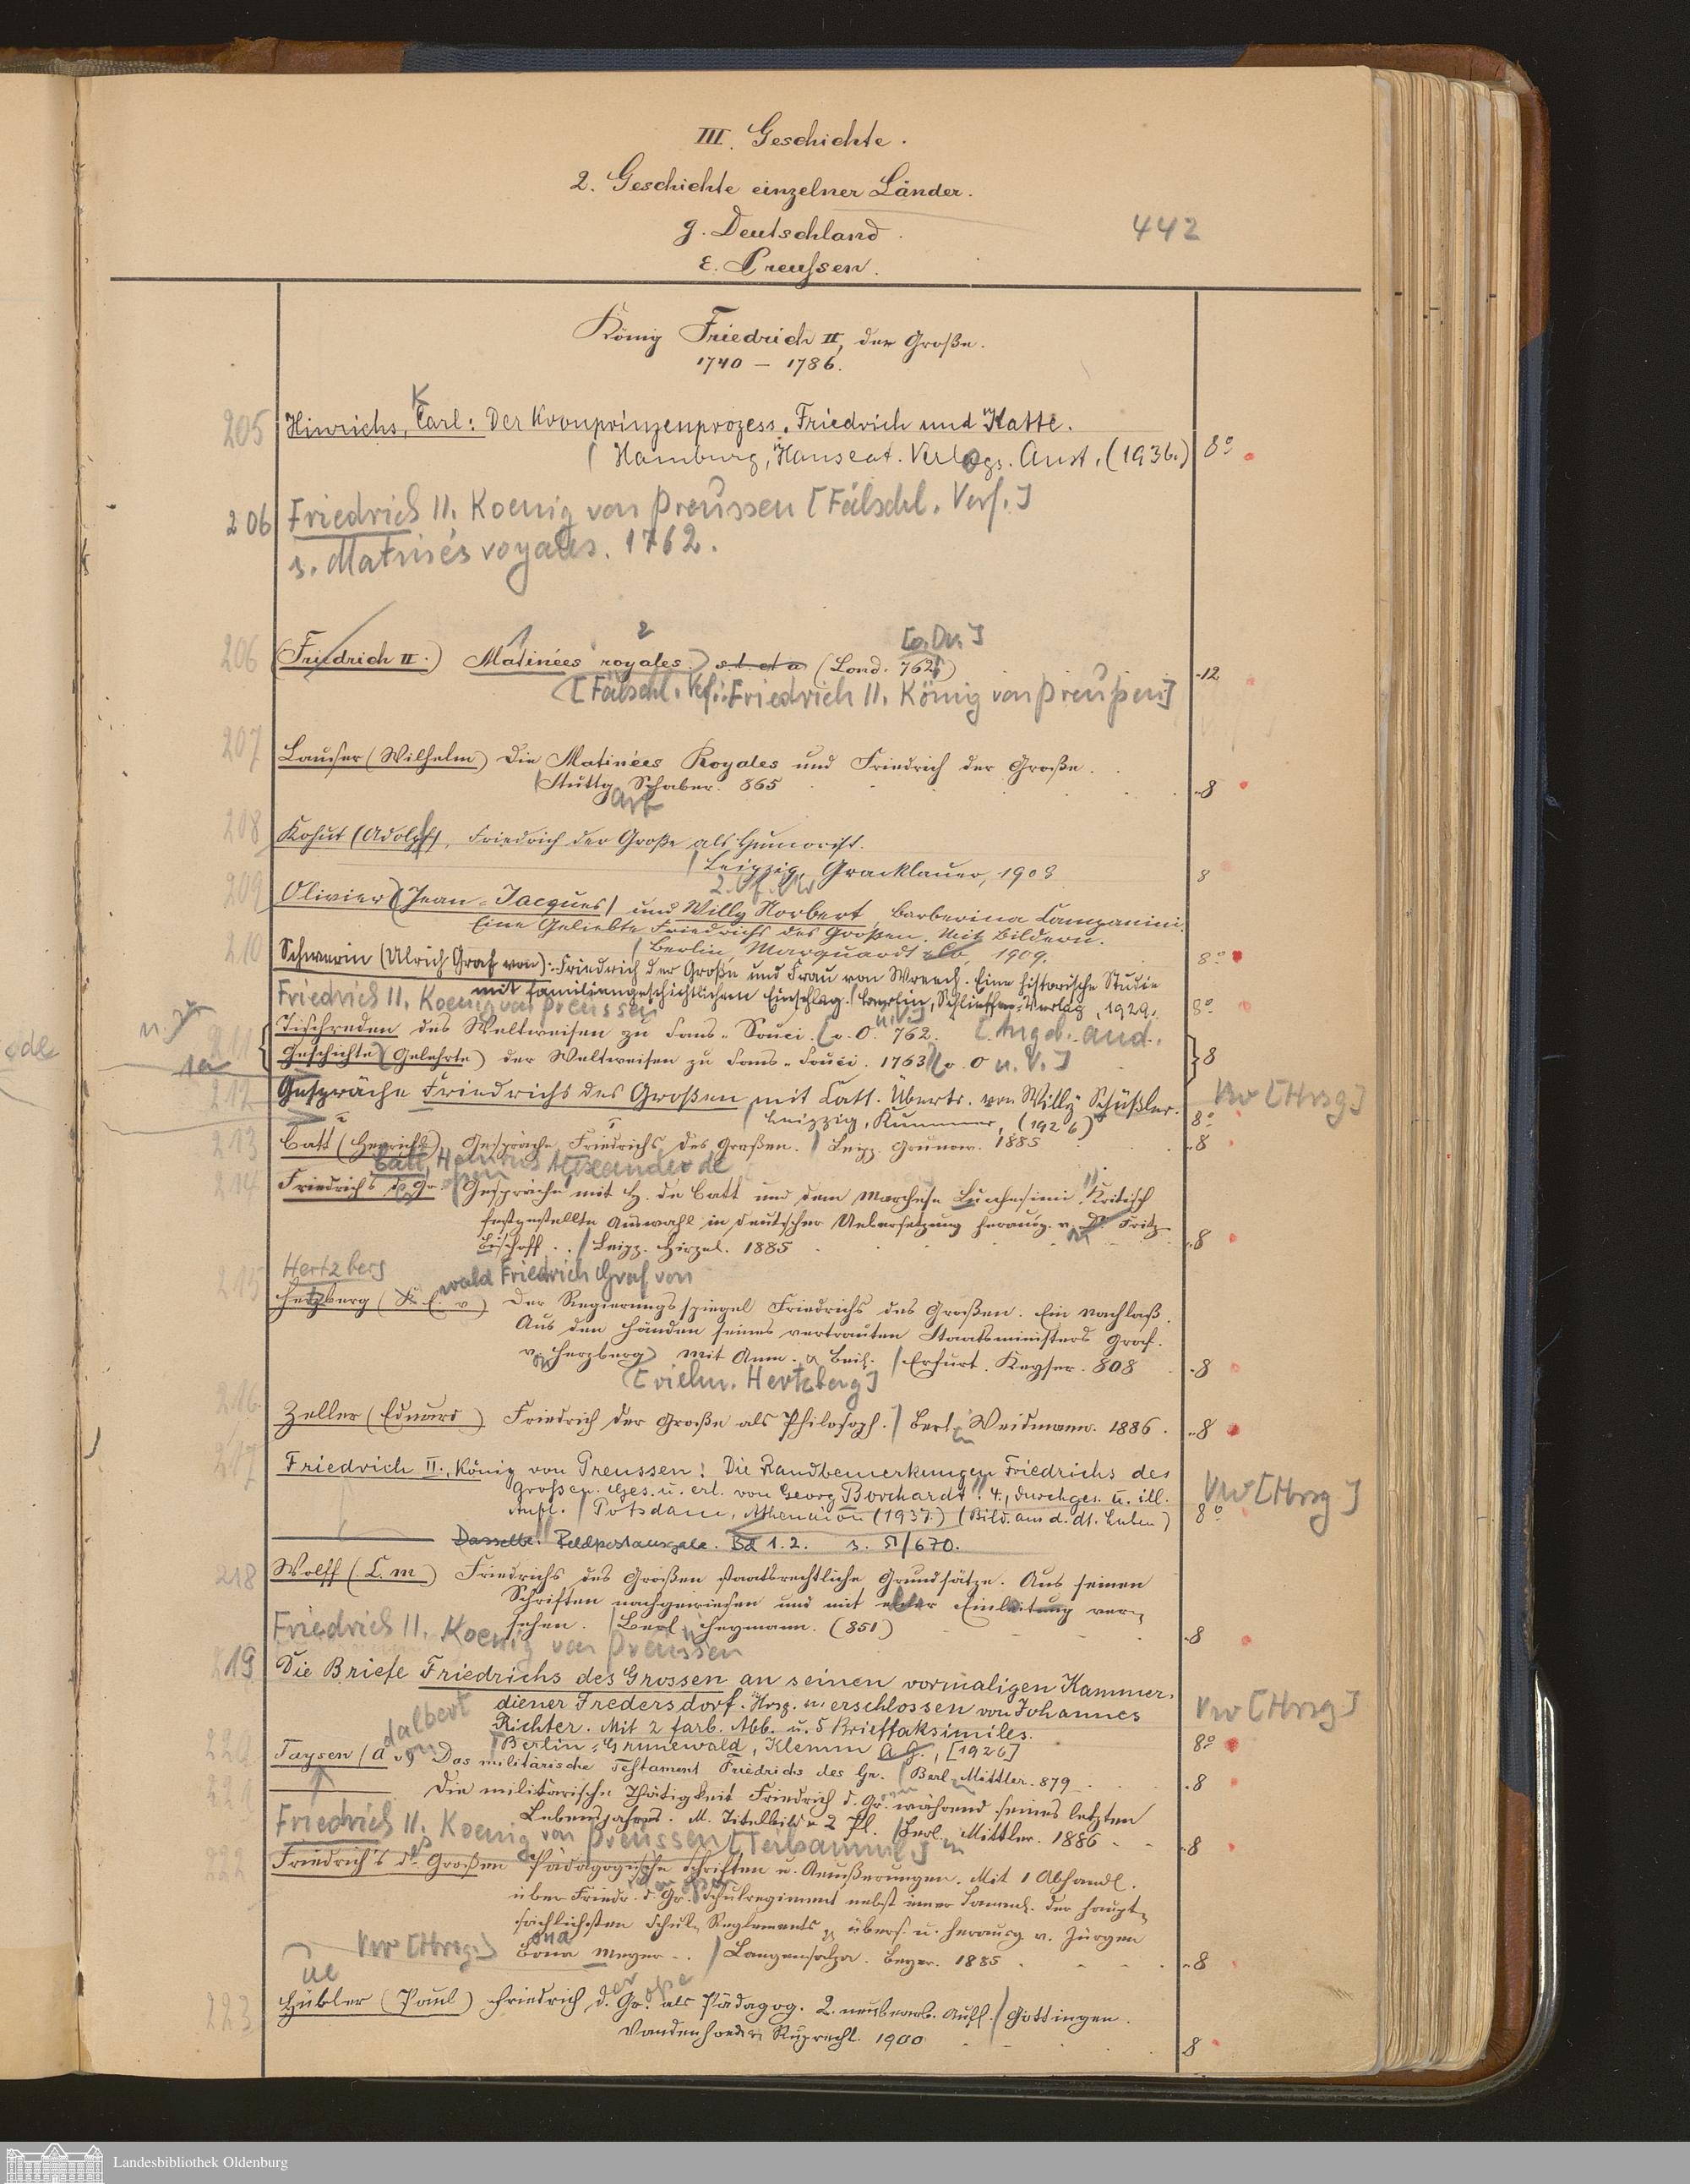 III. Geschichte.
2. Geschichte einzelner Länder.
g. Deutschland.
442
ε. Preußen.
König Friedrich II, der Große.
1740 – 1786.
K
205 Hinrichs, Carl: Der Kronprinzenprozess. Friedrich und Katte.
/ Hamburg, Hanseat. Verlags. Anst. (1936.) 8°
206 Friedrich II. Koenig von Preussen [Fälschl. Verf.]
s. Matinés royales. 1762.
2 [o. Dr.]
206 (Friedrich II.) Matinées royales. s. l. et a (Lond. 762) -12
[Fälschl. Verf.: Friedrich II. König von Preußen]
207 Lauser (Wilhelm) Die Matinées Royales und Friedrich der Große.
/ Stuttg. Schaber. 865 -8
art
208 Kohut (Adolph), Friedrich der Große als Humorist.
/ Leipzig, Gracklauer, 1908 8
209 Olivier (Jean-Jacques) und Willy Norbert, Barberina Campanini.
Eine Geliebte Friedrichs des Großen. Mit Bildern.
/ Berlin, Marquardt & Co, 1909. 8°
210 Schwerin (Ulrich Graf von): Friedrich der Große und Frau von Wreech. Eine historische Studie
mit familiengeschichtlichem Einschlag. / Berlin, Schlieffen-Verlag, 1929. 8°
Friedrich II. Koenig von Preussen
u. V.]
211 Tischreden des Weltweisen zu Sans-Souci. [o. O. 762. [Angeb. and.
Geschichte (Gelehrte) der Weltweisen zu Sans-Souci. 1763 [o. O u. V.] 8
1a
212 Gespräche Friedrichs des Großen mit Catt. Übertr. von Willy Schüßler. Vw [Hrsg]
/ Leipzig, Kummer, (1926) 8°
213 Catt (Henri de), Gespräche Friedrichs des Großen. / Leipz. Grunow. 1885 -8
Catt, Henrius Alexander de
214 Friedrichs d. Gr. Gespräche mit H. de Catt und dem Marchese Lucchesini. Kritisch
festgestellte Auswahl in deutscher Uebersetzung herausg. v. Dr. Fritz
Bischoff. . / Leipz. Hirzel. 1885 -8
Hertzberg
wald Friedrich Graf von
215 Herzberg (E. v) Der Regierungsspiegel Friedrichs des Großen. Ein Nachlaß.
Aus den Händen seines vertrauten Staatsministers Graf.
v. Herzberg) mit Anm. & Beil. / Erfurt. Keyser. 808 -8
[vielm. Hertzberg]
216 Zeller (Eduard) Friedrich der Große als Philosoph. / Berl. Weidmann. 1886. -8
in
217 Friedrich II., König von Preussen: Die Randbemerkungen Friedrichs des
Großen. Ges. u. erl. von Georg Borchardt 4., durchges. u. ill. Vw [Hrsg]
Aufl. / Potsdam, Athenaion (1937.) (Bild. aus d. dt. Leben) 8°
Dasselbe. Feldpostausgabe. Bd 1. 2. s. 670.
218 Wolff (C. M) Friedrichs des Großen staatsrechtliche Grundsätze. Aus seinen
Schriften nachgewiesen und mit einer Einleitung ver-
sehen. / Berl. Heymann. (851) -8
Friedrich II. Koenig von Preussen
219 Die Briefe Friedrichs des Grossen an seinen vormaligen Kammer-
diener Fredersdorf. Hrsg. u. erschlossen von Johannes Vw [Hrsg]
Richter. Mit 2 farb. Abb. u. 5 Brieffaksimiles.
/ Berlin-Grunewald, Klemm A. G., [1926] 8°
dalbert
220 Taysen (A v) Das militärische Testament Friedrichs des Gr. / Berl. Mittler. 879 -8
221 Die militärische Thätigkeit Friedrich d. Gr. während seines letzten
Lebensjahres. M. Titelbild & 2 Pl. / Berl. Mittler. 1886 -8
Friedrich II. Koenig von Preussen [Teilsamml.]
222 Friedrich's d. Großen Pädagogische Schriften u. Aeußerungen. Mit 1 Abhandl.
über Friedr. d. Gr. Schulregiment nebst einer Samml. der haupt-
sächlichsten Schul-Reglements &, übers. u. herausg. v. Jürgen
Vw [Hrsg.] Bona Meyer .. / Langensalza. Beyer. 1885 -8
ona
ue
223 Hübler (Paul) Friedrich d. Gr. als Pädagog. 2. neubearb. Aufl. / Göttingen.
Vandenhoeck & Ruprecht. 1900 8
Landesbibliothek Oldenburg